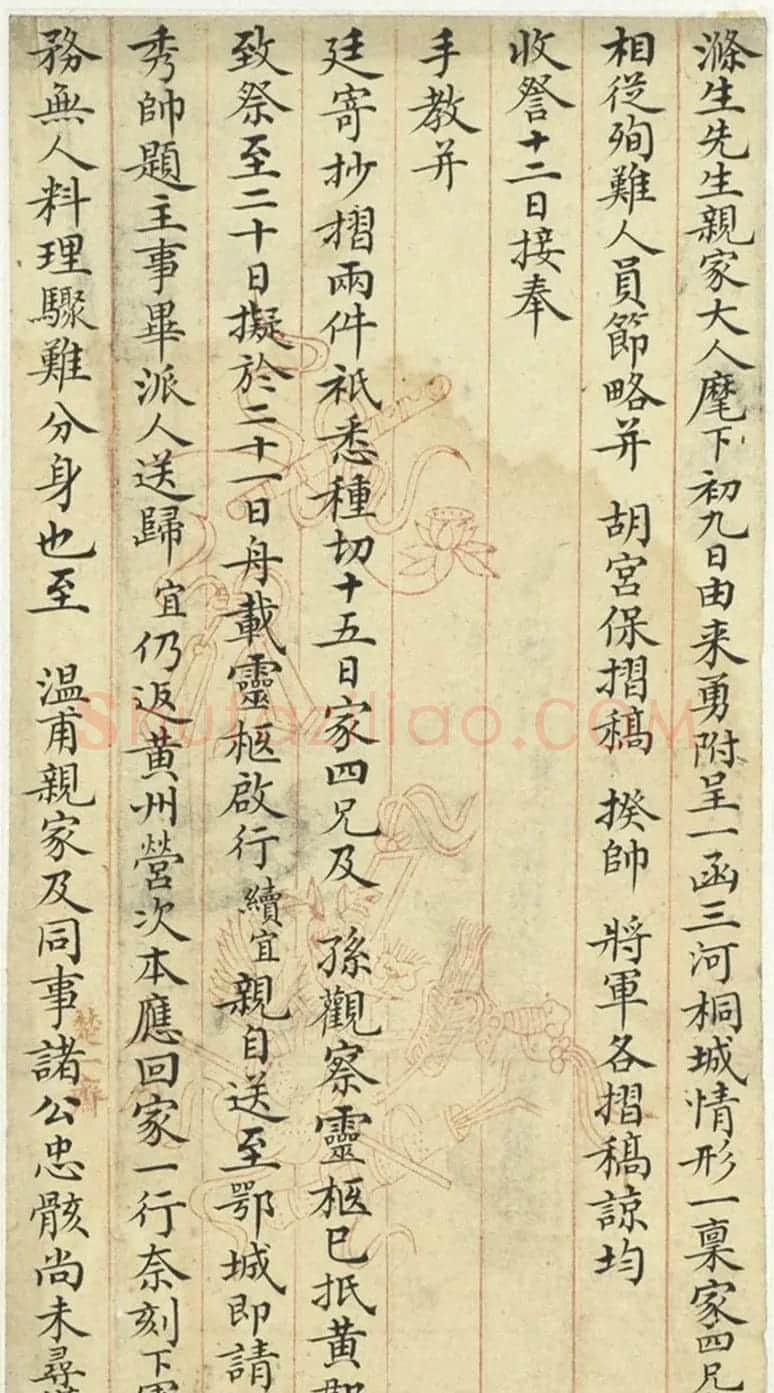 滌生先生親家大人麾下初九日由来勇附呈一函三河桐城情形一稟家四兄
相從殉難人員節略并 胡宮保摺稿 揆帥 將軍各摺稿諒均
收詧十二日接奉
手教并
廷寄抄摺兩件祇悉種切十五日家四兄及 孫觀察靈柩已抵黃
致祭至二十日擬於二十一日舟載靈柩啟行續宜親自送至鄂城即請
秀帥題主事畢派人送歸宜仍返黃州營次本應回家一行奈刻下
務無人料理驟難分身也至 温甫親家及同事諸公忠骸尚未尋
Shufaziliao.COM